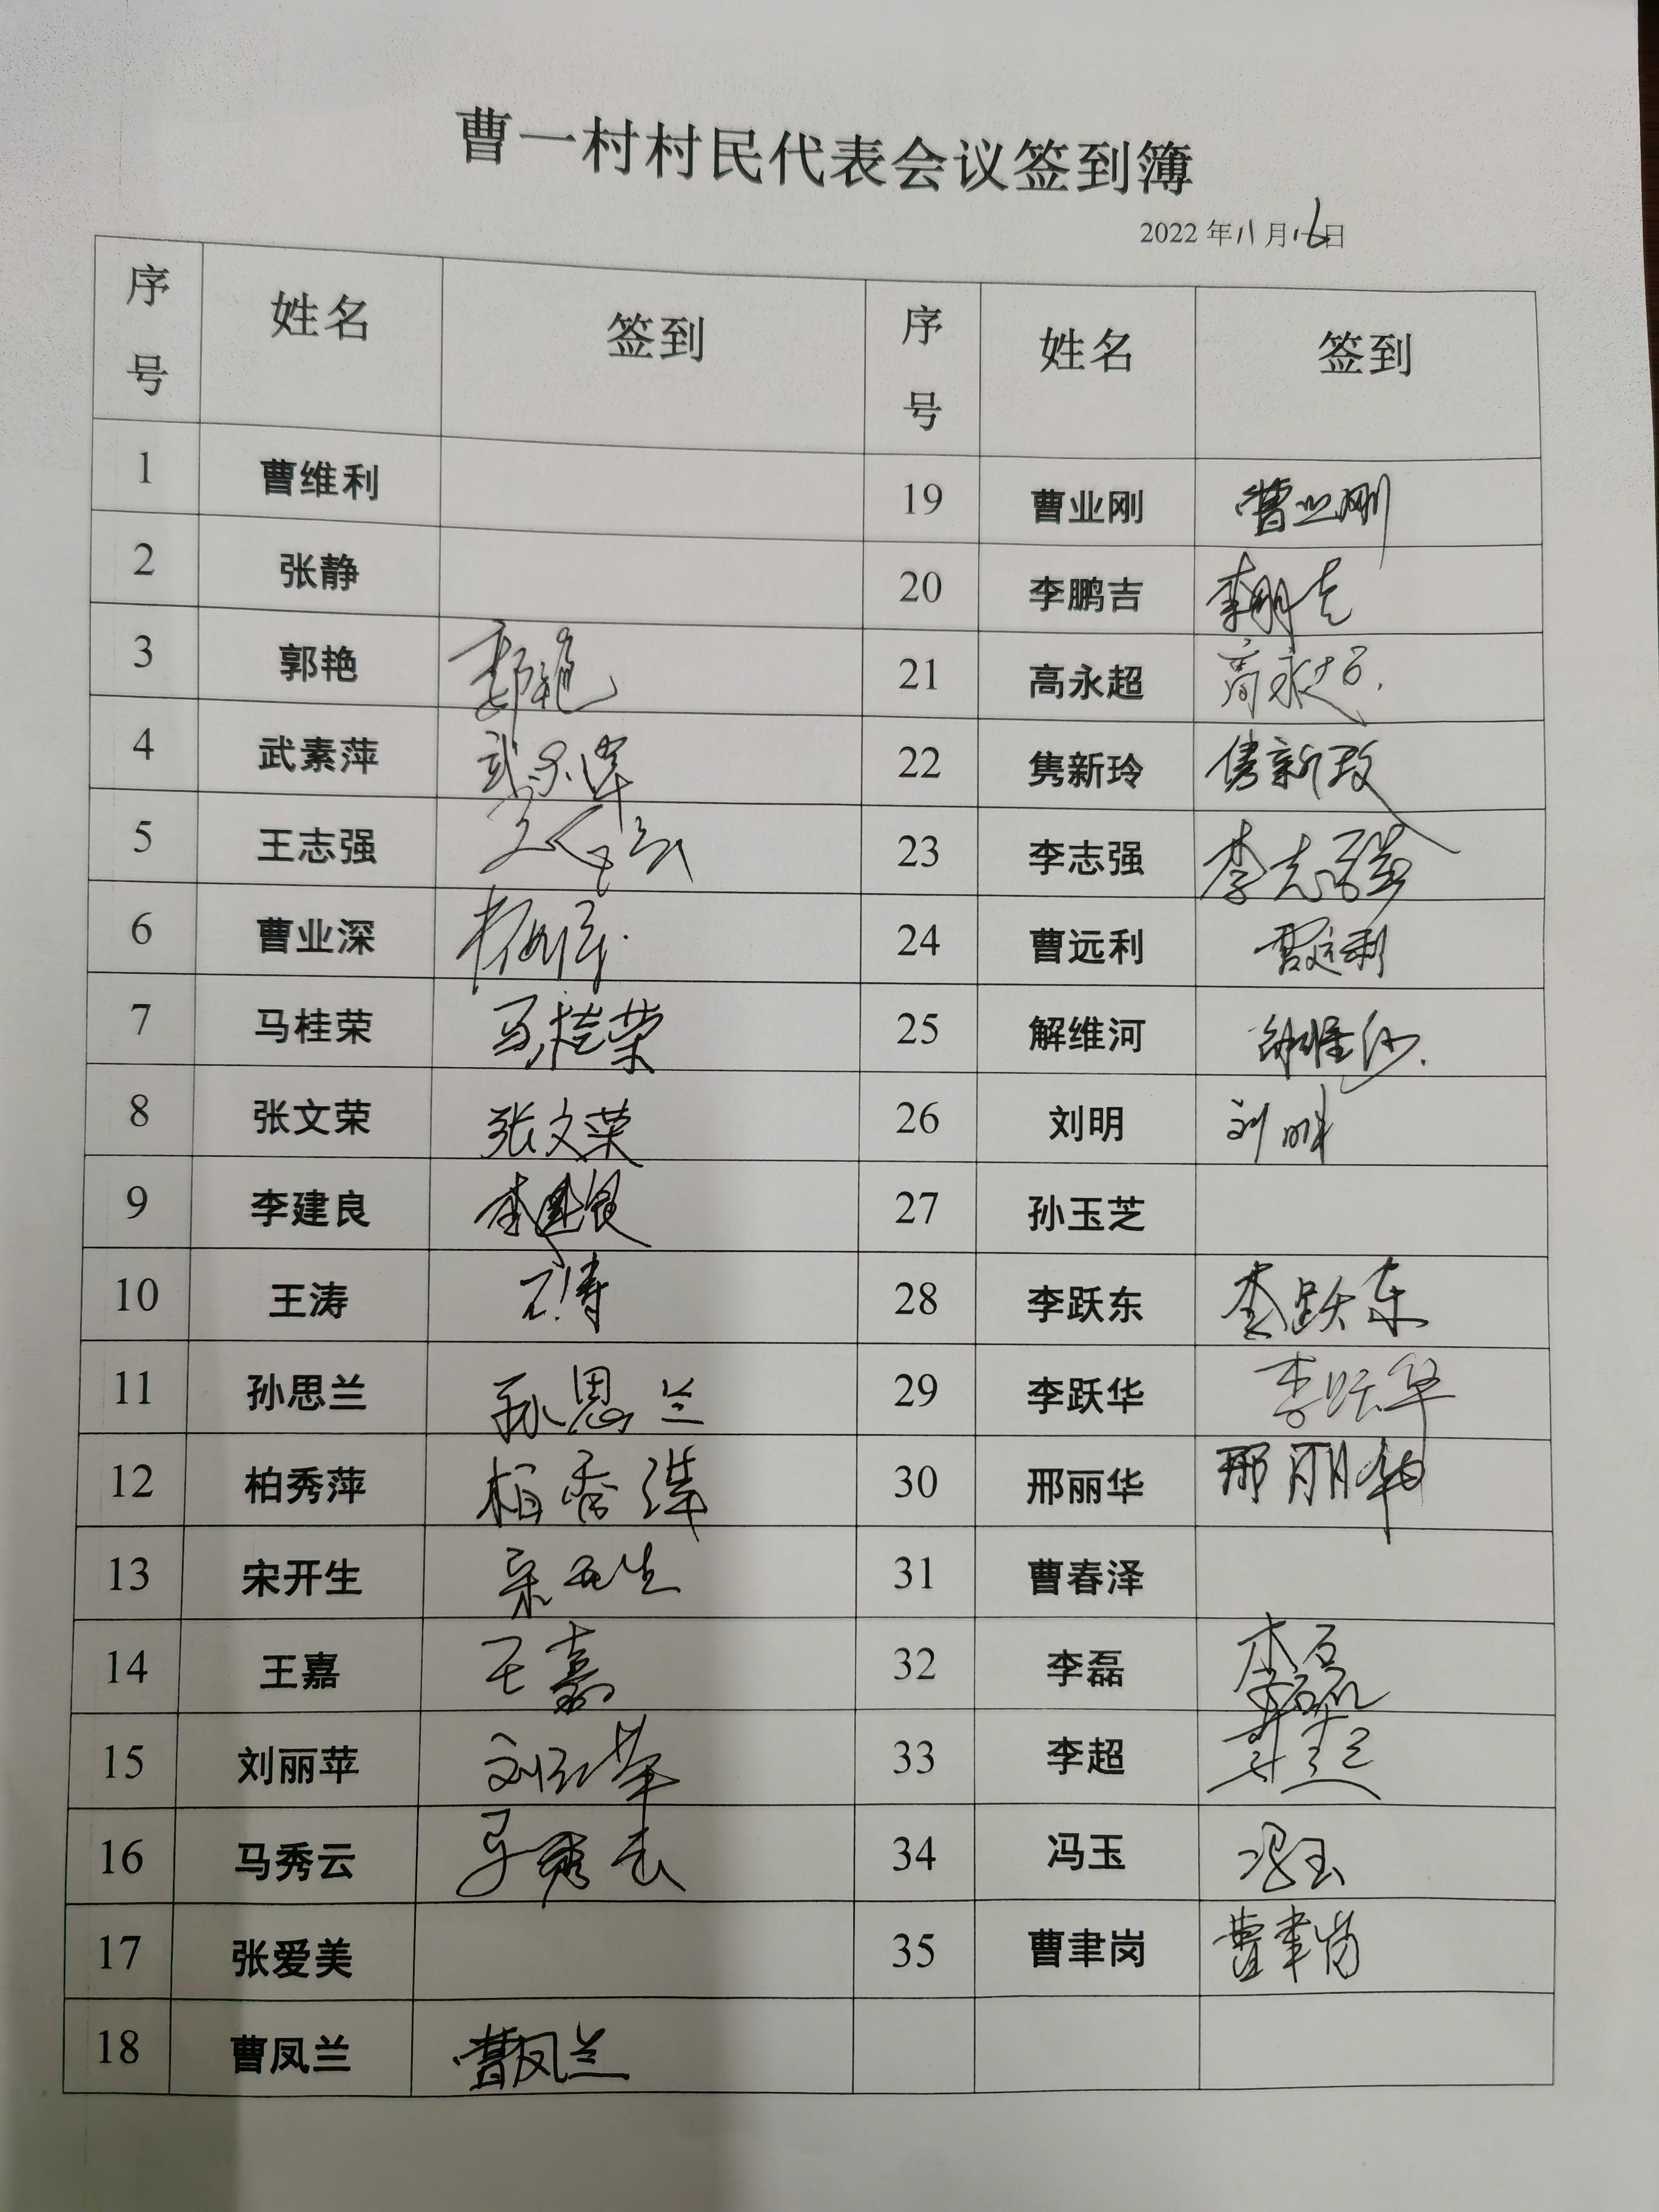 曹一村村民代表会议签到簿
2022年11月16日
序号 姓名 签到 序号 姓名 签到
1 曹维利 19 曹业刚 曹业刚
2 张静 20 李鹏吉 李鹏吉
3 郭艳 郭艳 21 高永超 高永超
4 武素萍 武素萍 22 隽新玲 隽新玲
5 王志强 23 李志强 李志强
6 曹业深 24 曹远利 曹远利
7 马桂荣 马桂荣 25 解维河 解维河
8 张文荣 张文荣 26 刘明 刘明
9 李建良 李建良 27 孙玉芝
10 王涛 王涛 28 李跃东 李跃东
11 孙思兰 孙思兰 29 李跃华 李跃华
12 柏秀萍 柏秀萍 30 邢丽华 邢丽华
13 宋开生 宋开生 31 曹春泽
14 王嘉 王嘉 32 李磊 李磊
15 刘丽苹 刘丽苹 33 李超 李超
16 马秀云 马秀云 34 冯玉 冯玉
17 张爱美 35 曹聿岗 曹聿岗
18 曹凤兰 曹凤兰